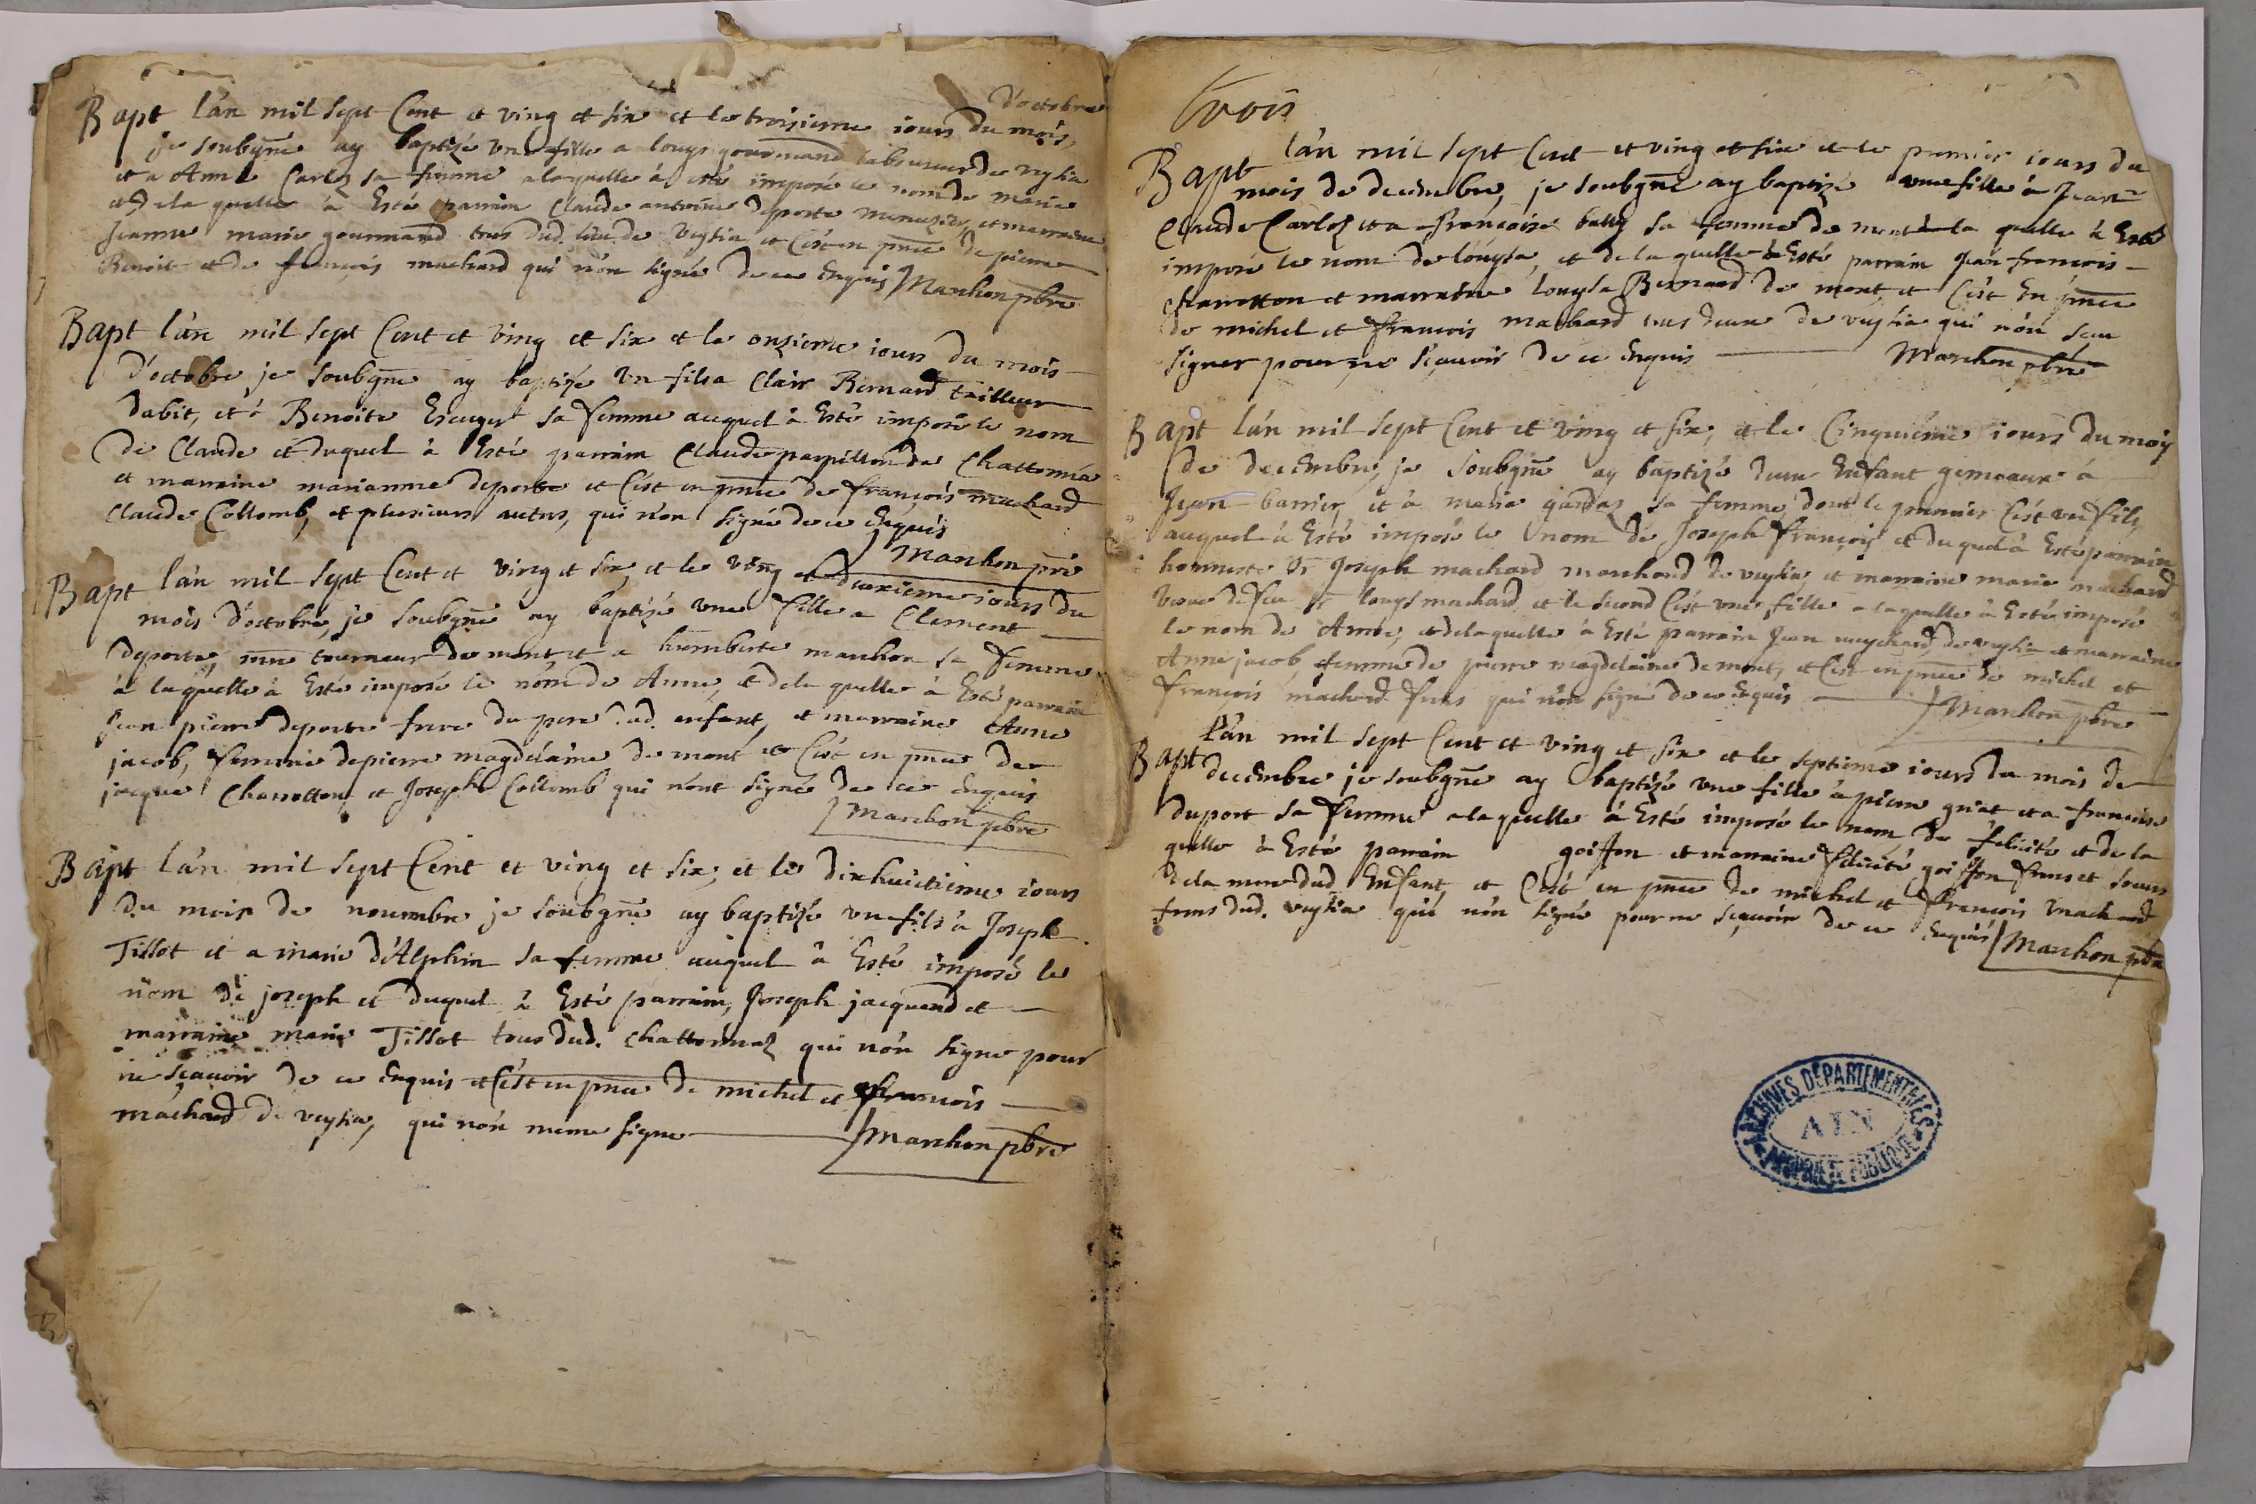 d'octobre
Bapt l'an mil sept Cent et ving et six et le troisieme iours du mois
je soubgne ay baptizé une fille a louys gourmand laboureur de veylia
et a Anne Carloz sa femme a laquelle à esté imposé le nom de marie
et de la quelle à Esté parrain Claude antoine deporte menuzier, et marraine
Jeanne marie gourmand tous dud. lieu de Veylia et C'est en pnce de pierre
Benoit et de françois machard qui n'on signé de ce Enquis Marchon pbre
Bapt l'an mil sept Cent et ving et six et le onzieme iours du mois
d'octobre je soubgne ay baptizé Un fils a Clair Bernard tailleur
dabit, et à Benoite sa femme auquel à Esté imposé le nom
de Claude et duquel à Esté parrain Claude papillon de Chattonna
et marraine marianne deporte et C'est en pnce de françois machard
Claude Collomb, et plusieurs autres, qui n'on signé de ce Enquis
Marchon pbre
Bapt l'an mil sept Cent et ving et six, et le ving et deuxieme iours du
mois d'octobre, je soubgne ay baptizé une fille a Clement
deporte, me tourneur de mont et a humberte marchon sa femme
à laquelle à Esté imposé le nom de Anne, et de la quelle à Esté parrain
Jean pierre deporte frere du pere dud. enfant, et marraine Anne
jacob, femme de pierre magdelaine de mont et C'est en pnce de
jacque Charretton et Joseph Collomb qui n'ont signé de ce Enquis
Marchon pbre
Bapt l'an mil sept Cent et ving et six, et le dixhuictieme iours
du mois de novembre je soubgne ay baptizé un fils à Joseph
Tissot et a marie d'Alphin sa femme auquel à Esté imposé le
nom de joseph et duquel à Esté parrain, Joseph jacquand et
marraine marie Tissot tous dud. Chattonnaz qui n'on signe pour
ne sçavoir de ce Enquis et C'est en pnce de michel et françois
machard de veylia, qui n'on meme signe Marchon pbre
trois
Bapt l'an mil sept Cent et ving et six et le premier iours du
mois de decembre, je soubgne ay baptizé une fille à Jean
Claude Carloz et a françoise bally sa femme de mont a la quelle à Esté
imposé le nom de louysa, et de la quelle à Esté parrain Jean françois
Charretton et marraine louysa Bernard de mont et C'est En pnce
de michel et françois machard tous deux de veylia qui n'on sceu
signer pour ne sçavoir de ce Enquis Marchon pbre
Bapt l'an mil sept Cent et ving et six, et le Cinquieme iours du moy
de decembre, je soubgne ay baptizé deux Enfant gemeaux à
Jean barrier, et à maria gardaz sa femme, dont le premier C'est un fils
auquel à Esté imposé le nom de Joseph François et duquel à Esté parrain
honneste Sr Joseph machard marchand de veylia et marraine marie machard
veuve de feu Sr louys machard et le second C'est une fille a laquelle à Esté imposé
le nom de Anne, et de laquelle à Esté parrain Jean de veylia et marraine
Anne jacob, femme de pierre magdelaine de mont, et C'est en pnce de michel et
françois machard freres qui n'on signé de ce Enquis Marchon pbre
Bapt l'an mil sept Cent et ving et six et le septieme iours du mois de
decembre je soubgne ay baptizé une fille à pierre griat et a françoise
duport sa femme a laquelle à Esté imposé le nom de felicité et de la
quelle à Esté parrain goiffon et marraine felicité goiffon frere et sœurs
de la mere dud Enfant et C'est en pnce de michel et françois machard
freres dud. veylia qui n'on signé pour ne sçavoir de ce Enquis Marchon pbre
ARCHIVES DEPARTEMENTALES
AIN
PROPRIETE PUBLIQUE